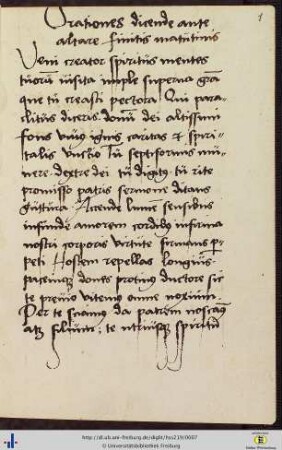 1
Orationes dicende ante
altare finitis matutinis
Veni creator spiritus mentes
tuorum visita imple superna gra
que tu creasti pectora Qui para
clitus diceris donum dei altissimi
fons vivus ignis caritas et spiri
talis unctio Tu septiformis mu
nere dextre dei tu digitus tu rite
promisso patris sermone ditans
guttura Accende lumen sensibus
infunde amorem cordibus infirma
nostri corporis virtute firmans per
peti Hostem repellas longius
pacemque dones protinus ductore sic
te previo vitemus omne noxium
Per te sciamus da patrem noscamus
atque filium te utriusque spiritum
http://dl.ub.uni-freiburg.de/diglit/hs219/0007
© Universitätsbibliothek Freiburg